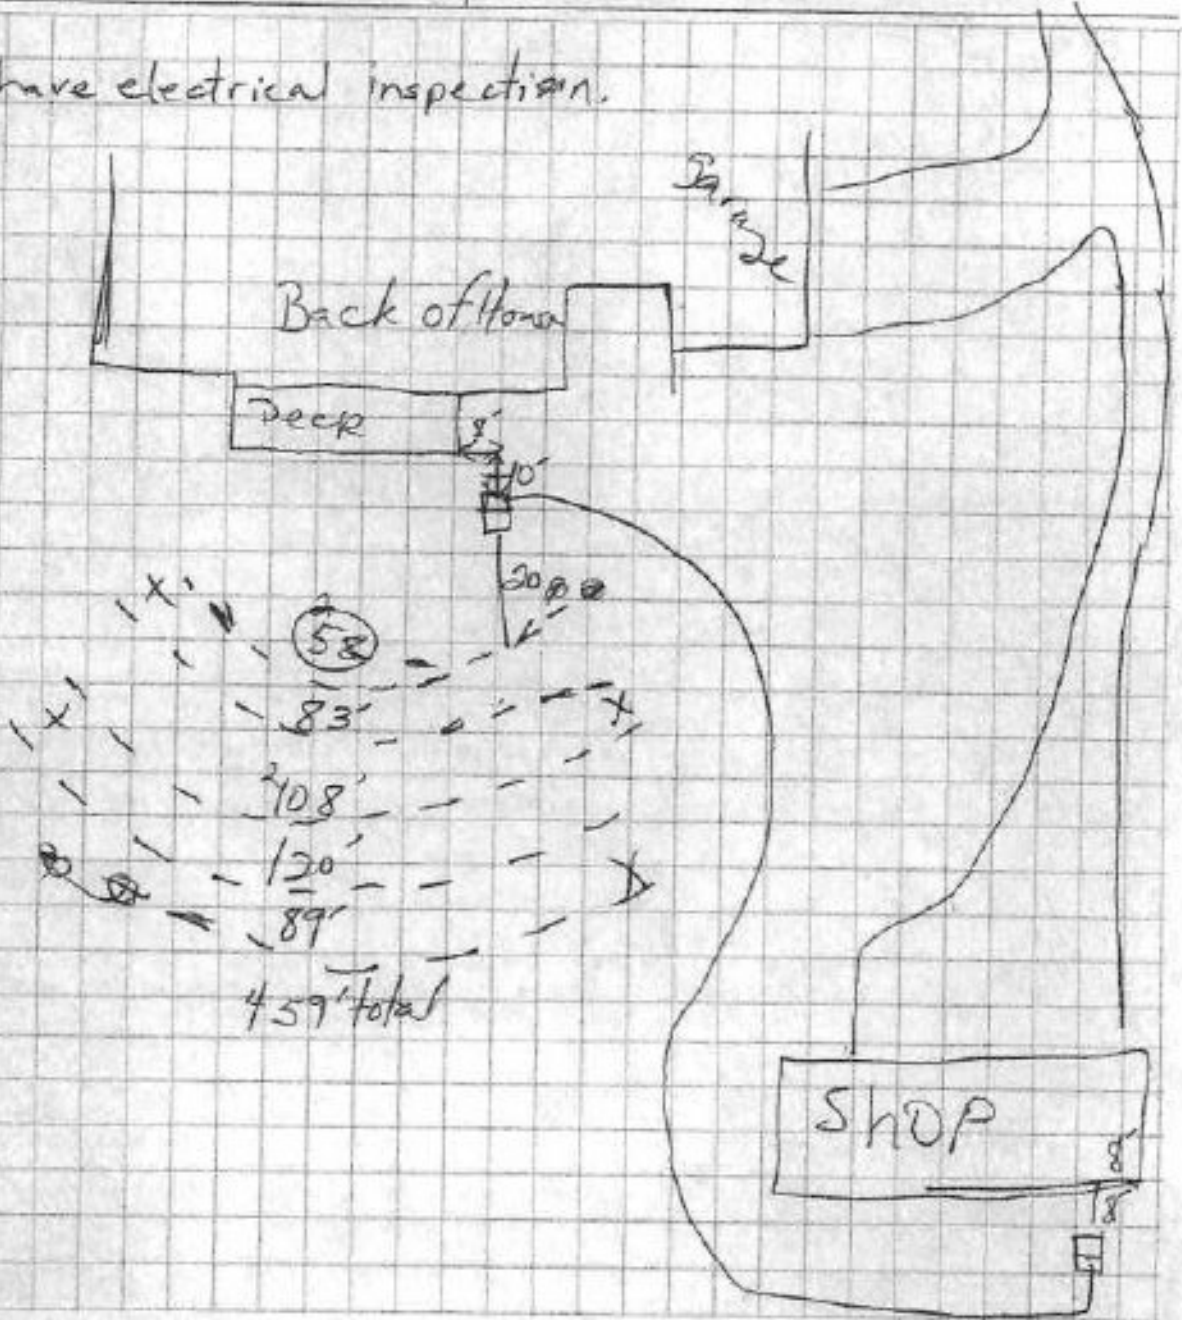 have electrical inspection.
Garage
Back of House
Deck
8'
10'
20
58
83'
108'
120'
89'
459' total
Shop
8'
8'